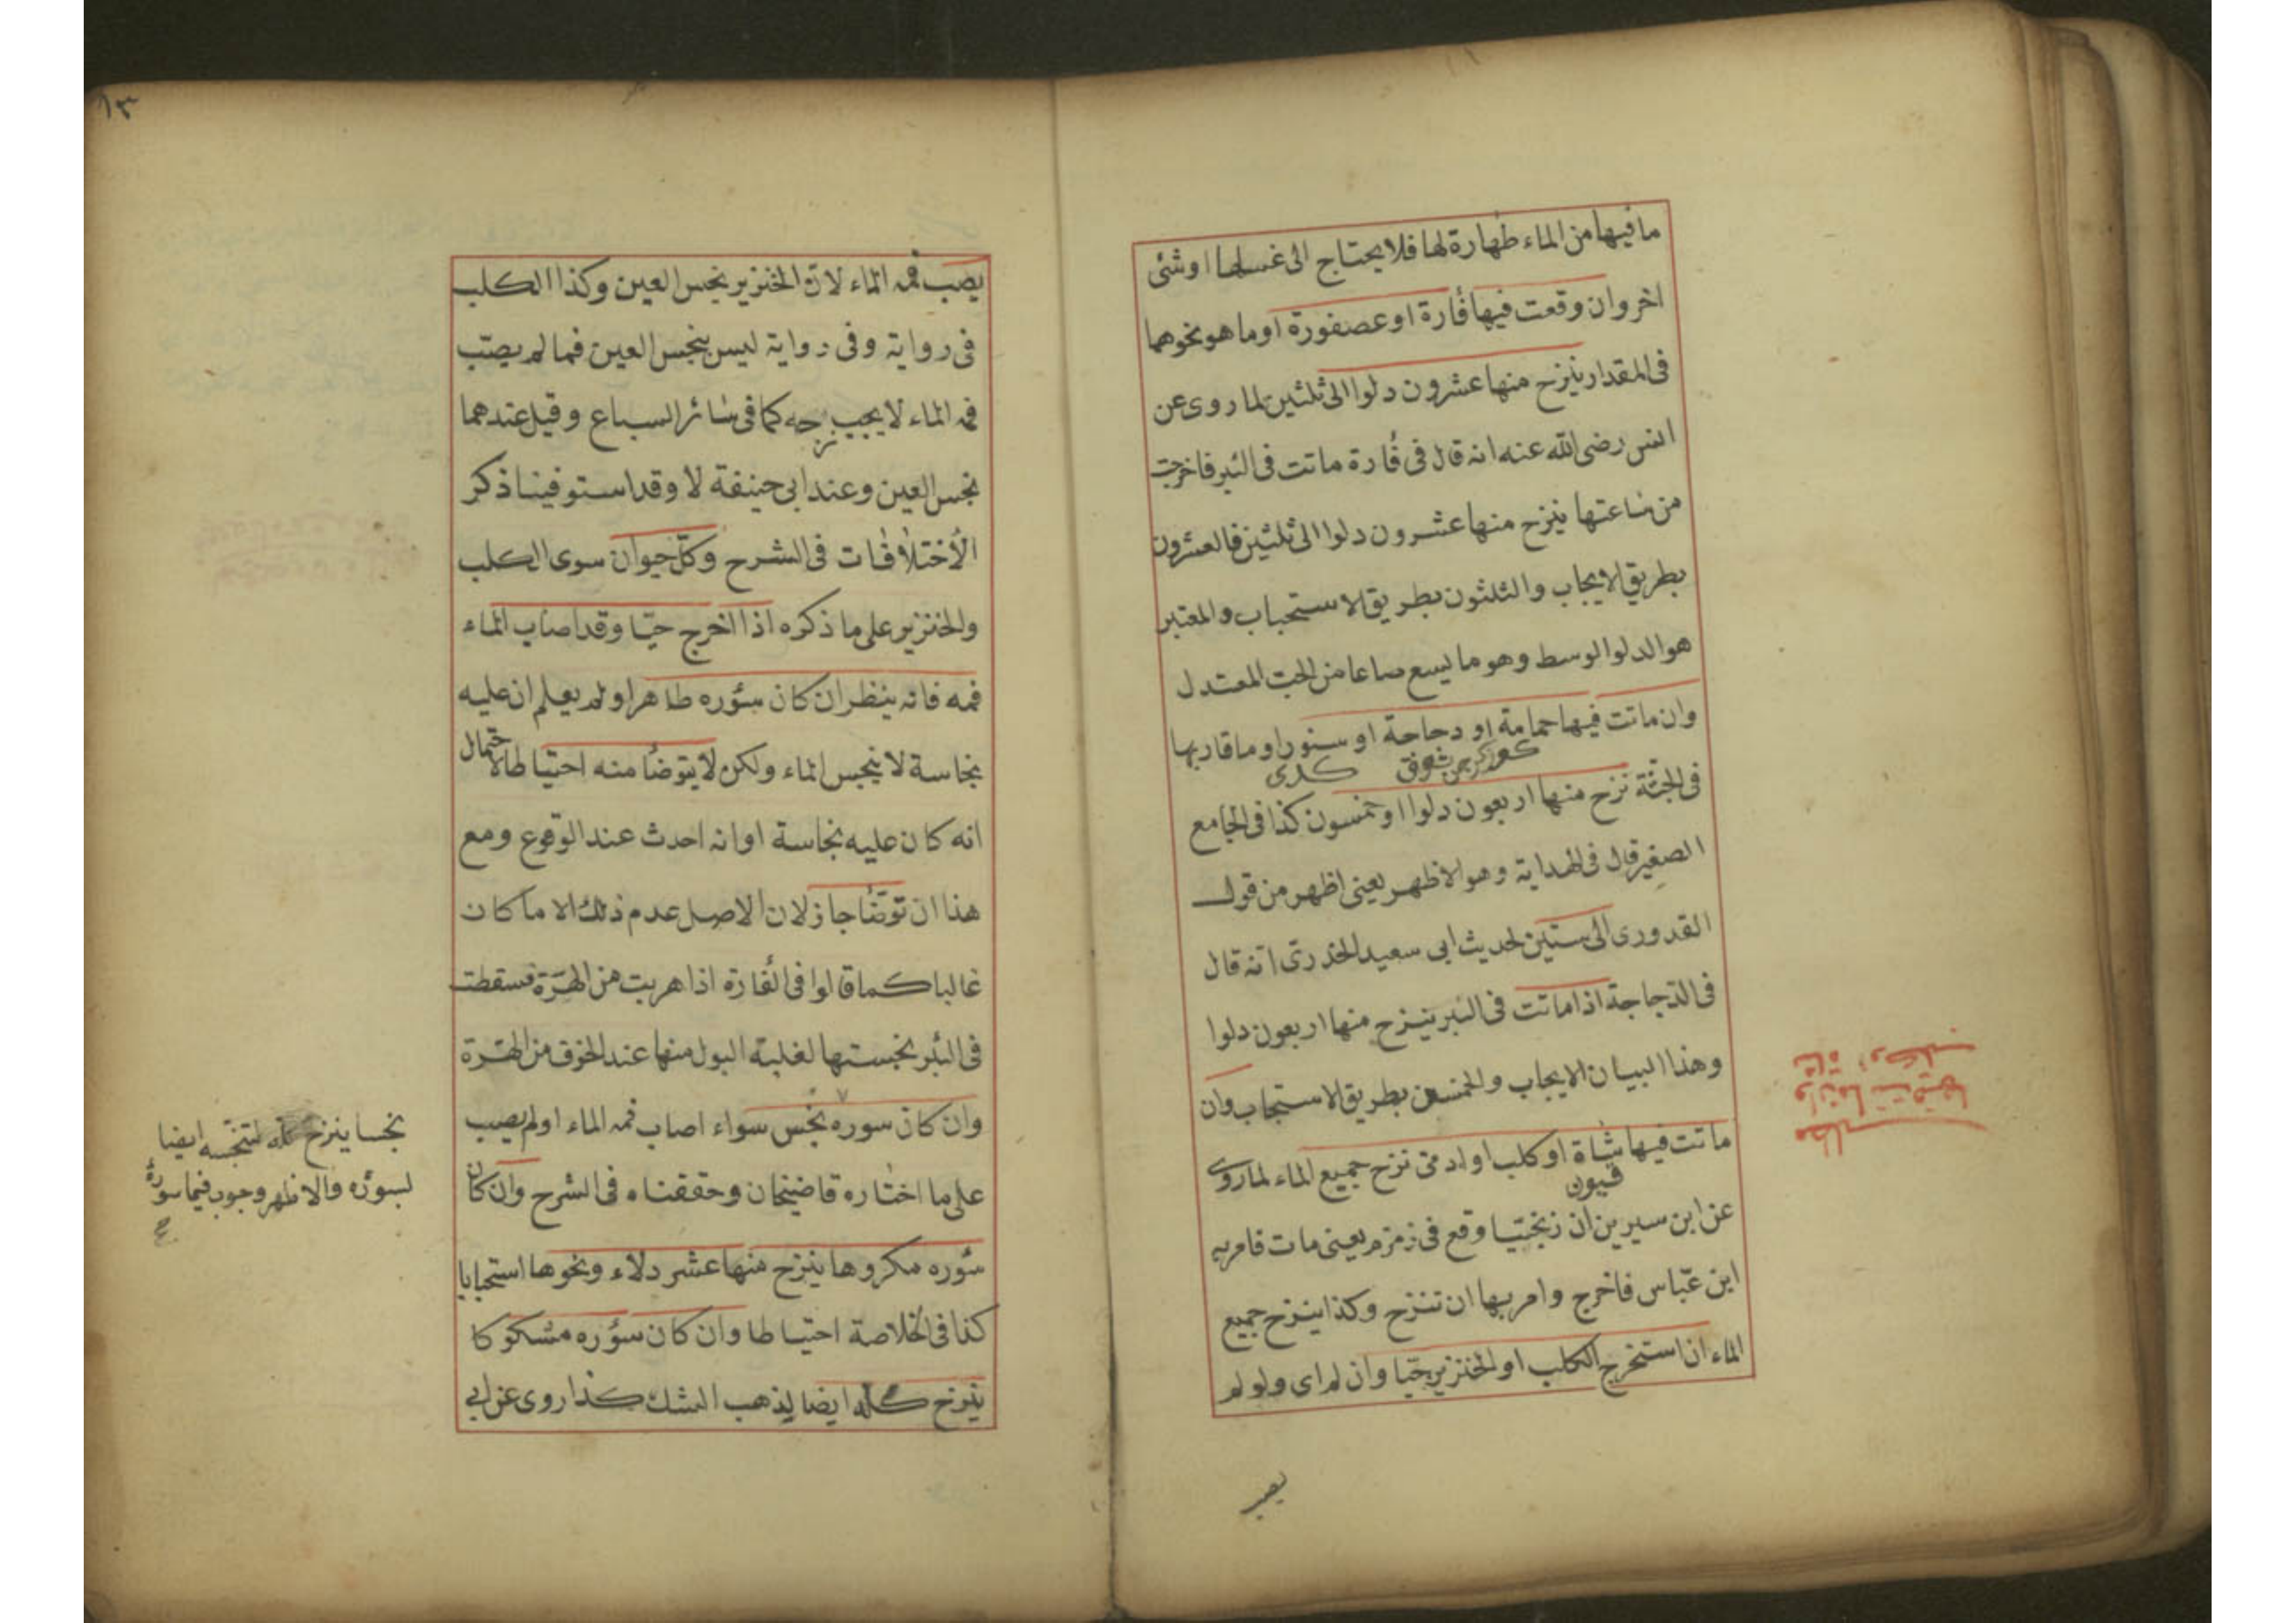 ما فيها من الماء طهارة لها فلا يحتاج الى غسلها او شئ
اخر وان وقعت فيها فأرة او عصفورة او ما هو نحوهما
فى المقدار ينزح منها عشرون دلوا الى ثلثين لما روى عن
انس رضى الله عنه انه قال فى فأرة ماتت فى البئر فاخرجت
من ساعتها ينزح منها عشرون دلوا الى ثلثين فالعشرون
بطريق الايجاب والثلثون بطريق الاستحباب والمعتبر
هو الدلو الوسط وهو ما يسع صاعا من الحب المعتدل
وان ماتت فيها حمامة او دجاجة او سنور او ما قاربها
كدى
فى الجثة نزح منها اربعون دلوا او خمسون كذا فى الجامع
الصغير قال فى الهداية وهو الاظهر يعنى اظهر من قول
القدورى الى ستين لحديث ابى سعيد الخدرى انه قال
فى الدجاجة اذا ماتت فى البئر ينزح منها اربعون دلوا
وهذا البيان الايجاب والخمسون بطريق الاستحباب وان
ماتت فيها شاة او كلب او ادمى نزح جميع الماء لما روى
قيون
عن ابن سيرين ان زنجيا وقع فى زمزم يعنى مات فامر به
ابن عباس فاخرج وامر بها ان تنزح وكذا ينزح جميع
الماء ان استخرج الكلب او الخنزير حيا وان لم اى ولو لم
يصب
مطلب
وان ماتت فيها
شاة او كلب
١٣
يصب فمه الماء لان الخنزير نجس العين وكذا الكلب
فى رواية وفى رواية ليس بنجس العين فما لم يصب
فمه الماء لا يجب نزحه كما فى سائر السباع وقيل عندهما
نجس العين وعند ابى حنيفة لا وقد استوفينا ذكر
الأختلافات فى الشرح وكل حيوان سوى الكلب
والخنزير على ما ذكره اذا اخرج حيا وقد اصاب الماء
فمه فانه ينظر ان كان سؤره طاهرا ولم يعلم ان عليه
نجاسة لا ينجس الماء ولكن لا يتوضأ منه احتياطا لاحتمال
انه كان عليه نجاسة او انه احدث عند الوقوع ومع
هذا ان توضأ جاز لان الاصل عدم ذلك الا ما كان
غالبا كما قالوا فى الفأرة اذا هربت من الهرة فسقطت
فى البئر نجستها لغلبة البول منها عند الخوف من الهرة
وان كان سوره نجس سواء اصاب فمه الماء او لم يصب
على ما اختاره قاضيخان وحققناه فى الشرح وان كان
سؤره مكروها ينزح منها عشر دلاء ونحوها استحبابا
كذا فى الخلاصة احتياطا وان كان سؤره مشكوكا
ينزح كله ايضا ليذهب الشك كذا روى عن ابى
نجسا ينزح كله لتنجسه ايضا
لسوره والاظهر وجوب فيما سوره